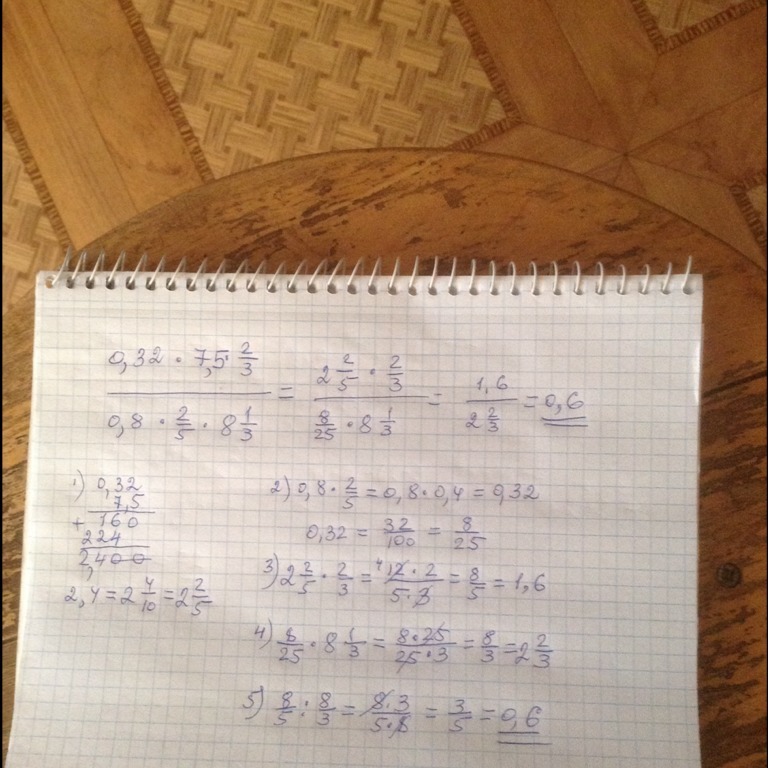 0,32 · 7,5 · 2/3 / 0,8 · 2/5 · 8 1/3 = 2 2/5 · 2/3 / 8/25 · 8 1/3 = 1,6 / 2 2/3 = 0,6
1) 0,32
7,5
+ 160
224
2,400
2,4 = 2 4/10 = 2 2/5
2) 0,8 · 2/5 = 0,8 · 0,4 = 0,32
0,32 = 32/100 = 8/25
3) 2 2/5 · 2/3 = 4 12 · 2 / 5 · 3 = 8/5 = 1,6
4) 8/25 · 8 1/3 = 8 · 25 / 25 · 3 = 8/3 = 2 2/3
5) 8/5 : 8/3 = 8 · 3 / 5 · 8 = 3/5 = 0,6